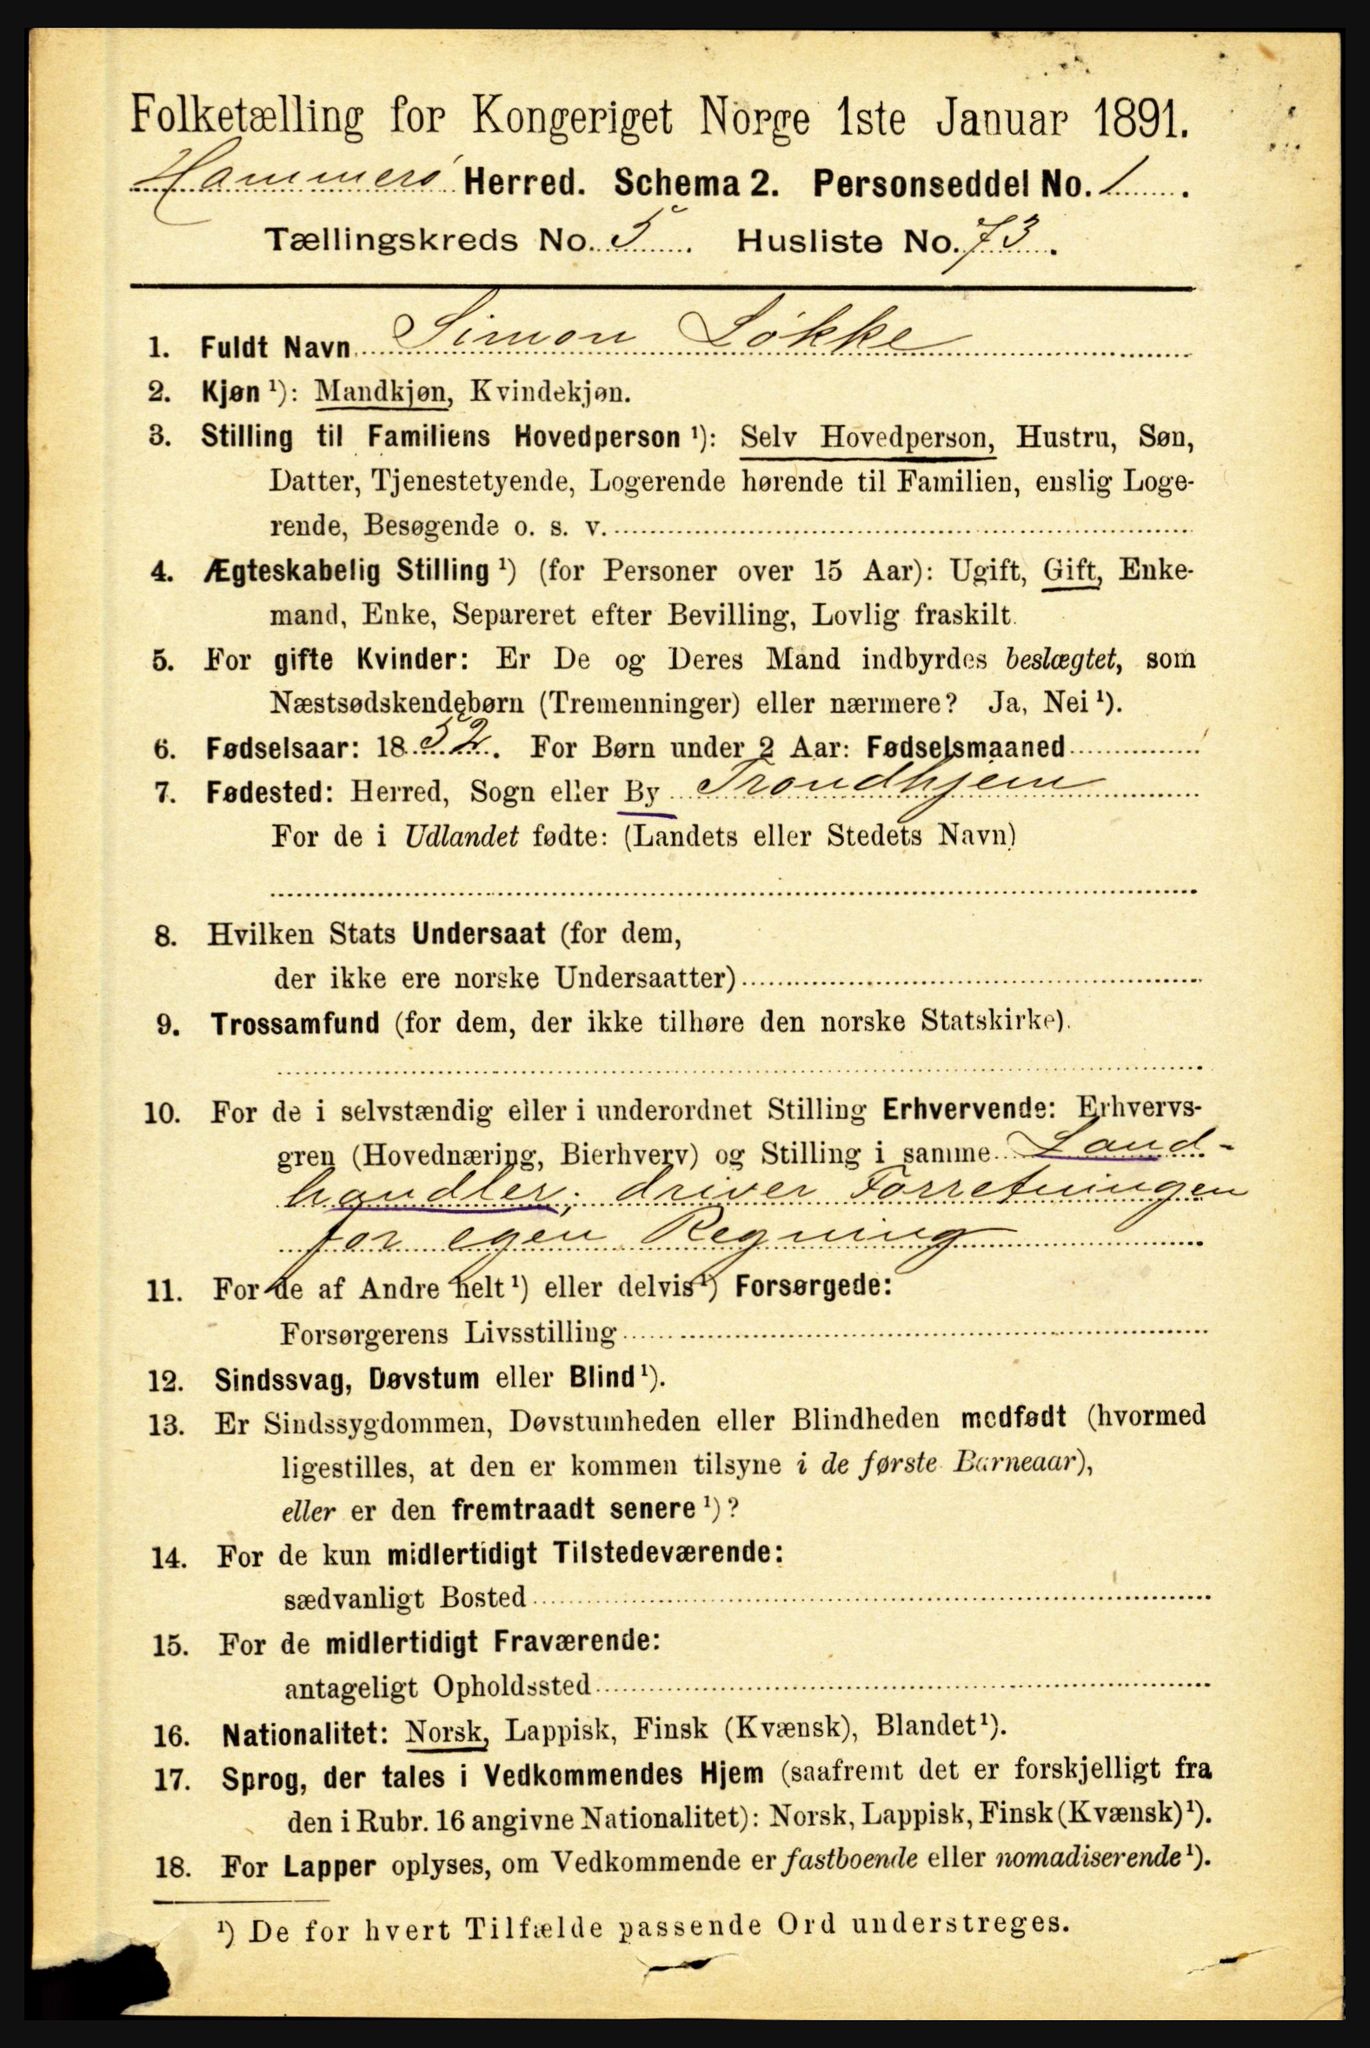 Folketælling for Kongeriget Norge 1ste Januar 1891.
Hammerø Herred. Schema 2. Personseddel No. 1.
Tællingskreds No. 5. Husliste No. 73.
1. Fuldt Navn Simon Løkke
2. Kjøn ¹): Mandkjøn, Kvindekjøn.
3. Stilling til Familiens Hovedperson ¹): Selv Hovedperson, Hustru, Søn,
Datter, Tjenestetyende, Logerende hørende til Familien, enslig Loge-
rende, Besøgende o. s. v.
4. Ægteskabelig Stilling ¹) (for Personer over 15 Aar): Ugift, Gift, Enke-
mand, Enke, Separeret efter Bevilling, Lovlig fraskilt.
5. For gifte Kvinder: Er De og Deres Mand indbyrdes beslægtet, som
Næstsødskendebørn (Tremenninger) eller nærmere? Ja, Nei ¹).
6. Fødselsaar: 1852. For Børn under 2 Aar: Fødselsmaaned
7. Fødested: Herred, Sogn eller By Trondhjem
For de i Udlandet fødte: (Landets eller Stedets Navn)
8. Hvilken Stats Undersaat (for dem,
der ikke ere norske Undersaatter)
9. Trossamfund (for dem, der ikke tilhøre den norske Statskirke).
10. For de i selvstændig eller i underordnet Stilling Erhvervende: Erhvervs-
gren (Hovednæring, Bierhverv) og Stilling i samme Land-
handler; driver Forretningen
for egen Regning
11. For de af Andre helt ¹) eller delvis ¹) Forsørgede:
Forsørgerens Livsstilling
12. Sindssvag, Døvstum eller Blind ¹).
13. Er Sindssygdommen, Døvstumheden eller Blindheden medfødt (hvormed
ligestilles, at den er kommen tilsyne i de første Barneaar),
eller er den fremtraadt senere ¹)?
14. For de kun midlertidigt Tilstedeværende:
sædvanligt Bosted
15. For de midlertidigt Fraværende:
antageligt Opholdssted
16. Nationalitet: Norsk, Lappisk, Finsk (Kvænsk), Blandet ¹).
17. Sprog, der tales i Vedkommendes Hjem (saafremt det er forskjelligt fra
den i Rubr. 16 angivne Nationalitet): Norsk, Lappisk, Finsk (Kvænsk) ¹).
18. For Lapper oplyses, om Vedkommende er fastboende eller nomadiserende ¹).
¹) De for hvert Tilfælde passende Ord understreges.